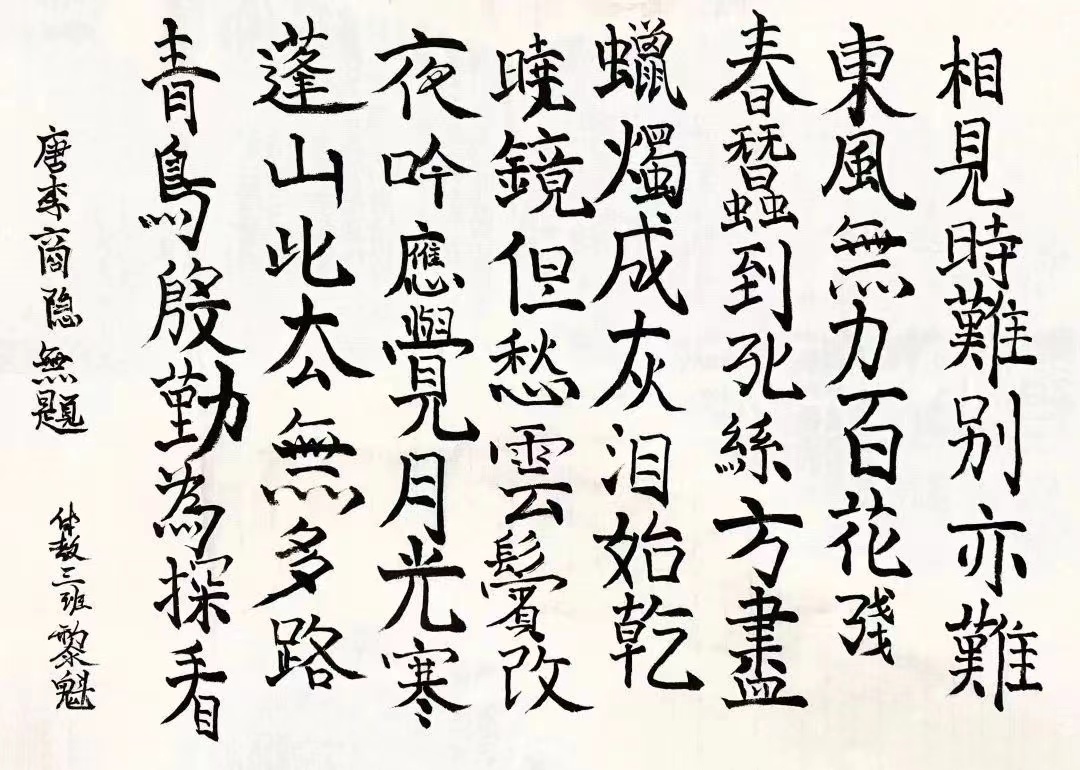 相見時難别亦難
東風無力百花殘
春蠶到死絲方盡
蠟燭成灰泪始乾
曉鏡但愁雲鬢改
夜吟應覺月光寒
蓬山此厺無多路
青鳥殷勤為探看
唐李商隐無題
体教三班黎魁